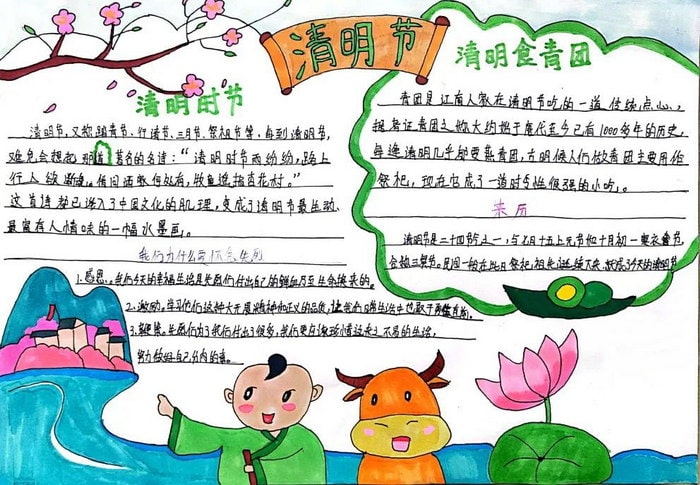 清明节
清明时节
清明节,又称踏青节、行清节、三月节、祭祖节等,每到清明节,
难免会想起那首著名的名诗:“清明时节雨纷纷,路上
行人欲断魂。借问酒家何处有,牧童遥指杏花村。”
这首诗都已渗入了中国文化的肌理,变成了清明节最生动、
最富有人情味的一幅水墨画。
我们为什么要怀念先烈
1.感恩。我们今天的幸福生活是先烈们付出自己的鲜血乃至生命换来的。
2.激励。学习他们这种大无畏精神和正义的品质,让我们日常生活中也敢于
3.鞭策。先烈们为了我们付出了很多,我们更应该珍惜这来之不易的生活,
努力做好自己分内的事。
清明食青团
青团是江南人家在清明节吃的一道传统点心,
据考证青团之称大约始于唐代至今已有1000多年的历史,
每逢清明几乎都要蒸青团,古时候人们做青团主要用作
祭祀,现在它成了一道时令性很强的小吃。
来历
清明节是二十四节之一,与七月十五上元节和十月初一寒衣节,
合称三冥节。民间一般在此日祭祀祖先延续下来,形成了今天的清明节